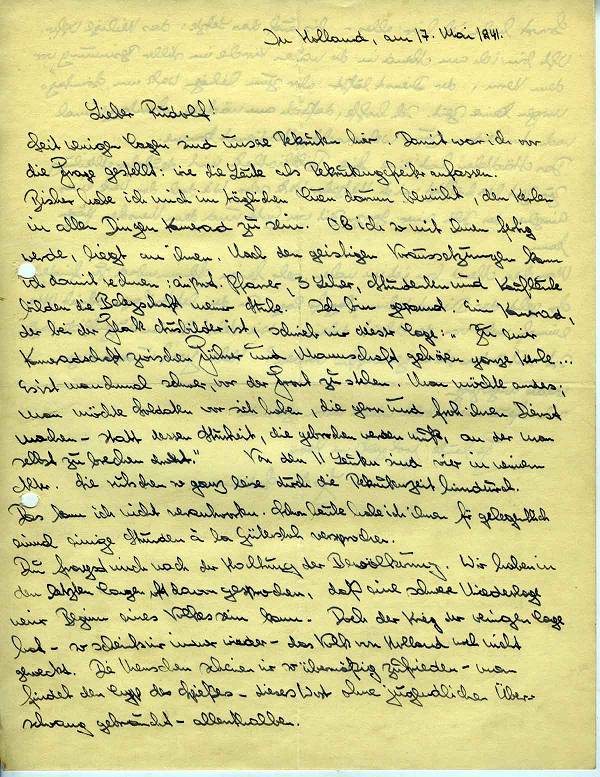 In Holland, am 17. Mai 1941.
Lieber Rudolf!
Seit wenigen Tagen sind unsre Rekruten hier. Damit war ich vor
die Frage gestellt: wie die Leute als Rekrutengefreiter anfassen.
Bisher habe ich mich im täglichen Tun darum bemüht, den Kerlen
in allen Dingen Kamerad zu sein. Ob ich so mit ihnen fertig
werde, liegt an ihnen. Nach den geistigen Voraussetzungen kann
ich damit rechnen: Pfarrer, 3 Lehrer, Studenten und Kaufleute
bilden die Belegschaft meiner Stube. Ich bin gespannt. Ein Kamerad,
der bei der Flak Ausbilder ist, schrieb mir dieser Tage: "Zu einer
Kameradschaft zwischen Führer und Mannschaft gehören ganze Kerle...
Es ist manchmal schwer, vor der Front zu stehen. Man möchte andres;
man möchte Soldaten vor sich haben, die gern und froh ihren Dienst
machen - statt dessen Sturheit, die gebrochen werden muß, an der man
selbst zu brechen droht." Von den 11 Leuten sind vier in meinem
Alter. Sie rutschen so ganz leise durch die Rekrutenzeit hindurch.
Das kann ich nicht verantworten. Schon heute habe ich ihnen für gelegentlich
einmal einige Stunden à la versprochen.
Du fragst mich nach der Haltung der Bevölkerung. Wir haben in
den letzten Tagen oft davon gesprochen, daß eine schwere Niederlage
neuer Beginn eines Volkes sein kann. Doch der Krieg der wenigen Tage
hat - so scheint mir immer wieder - das Volk von Holland noch nicht
geweckt. Die Menschen scheinen mir so übermäßig zufrieden - man
findet den Typ des Spießers - dieses Wort ohne jugendlichen Über-
schwang gebraucht - allenthalben.